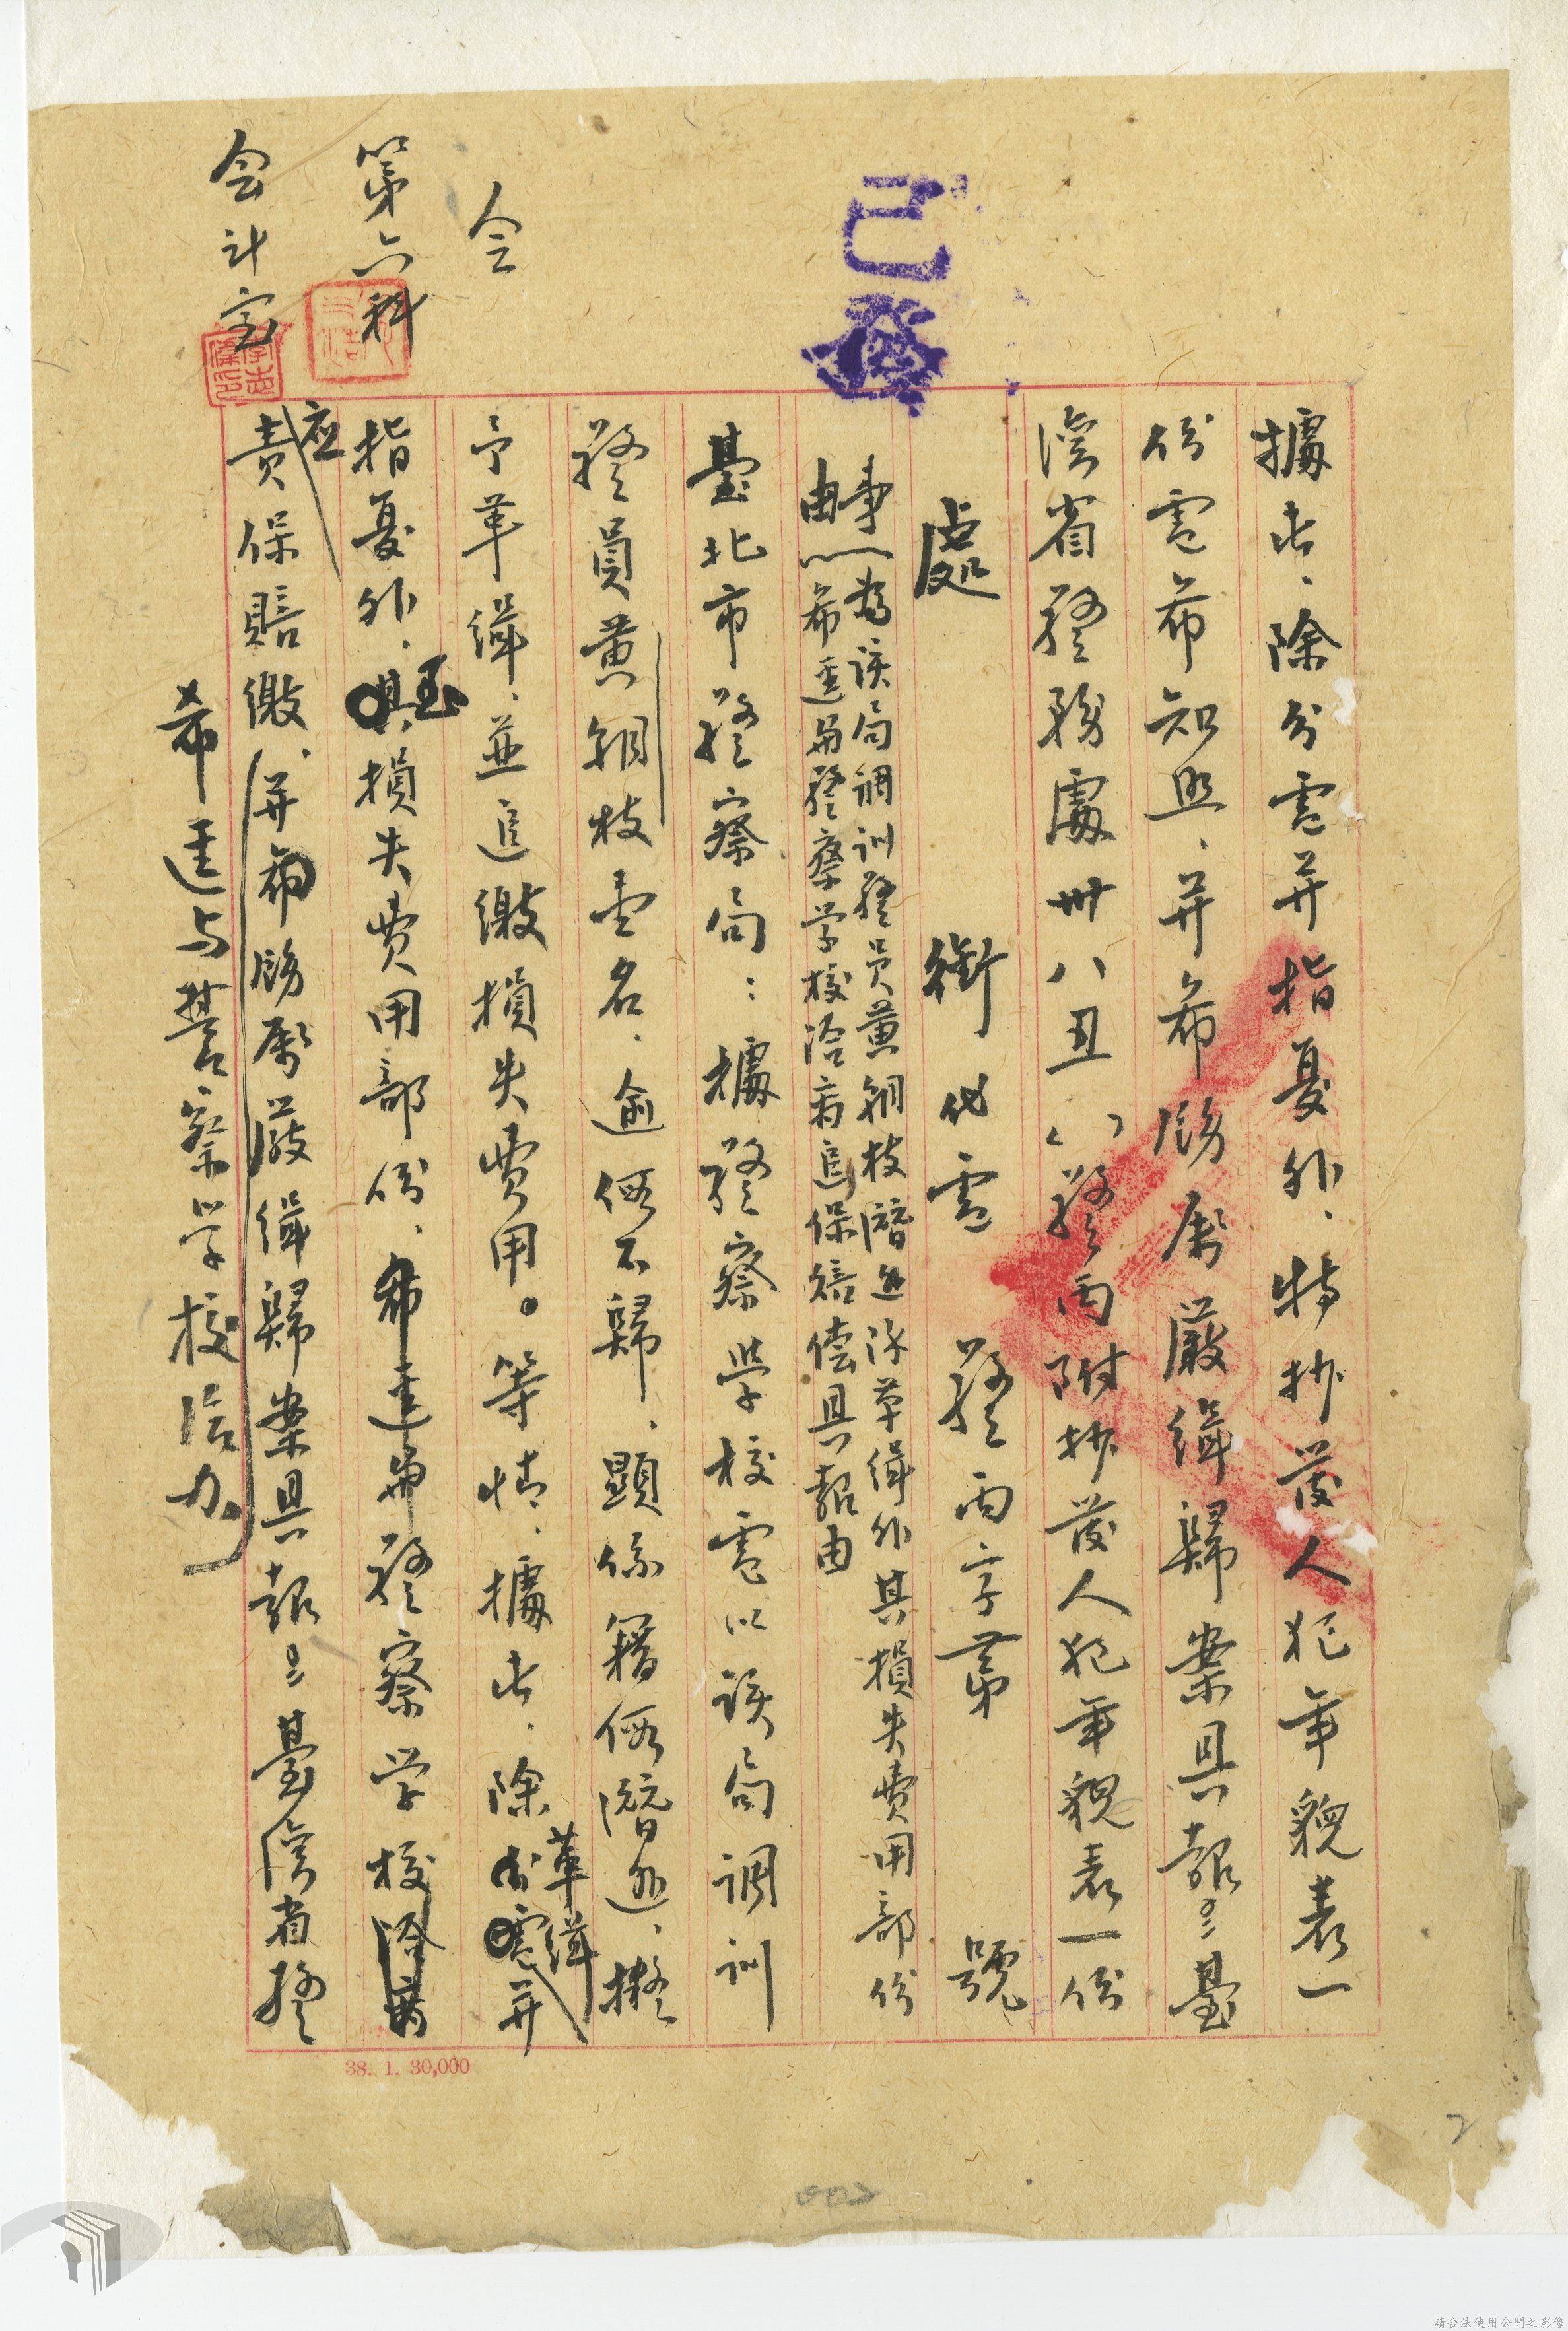 已發
據此、除分電并指复外、特抄發人犯年貌表一
份電希知照、并希飭屬嚴緝歸案具報。臺
灣省警務處卅八丑()警丙附抄發人犯年貌表一份
處銜代電 警丙字第 號
事由 為該局調訓警員黃錦枝潛逃除革緝外其損失費用部份
希逕與警察学校洽商追保賠償具報由
臺北市警察局：據警察學校電以該局調訓
警員黃錦枝壹名、逾假不歸、顯係藉假潛逃、擬
予革緝、並追繳損失費用。等情、據此、除革緝并
指复外、至損失費用部份、希逕與警察学校洽商
应責保賠繳、并希飭屬嚴緝歸案具報。臺灣省警
希逕与警察学校洽办
会
第六科
会計室
38. 1. 30,000
2
002
請合法使用公開之影像